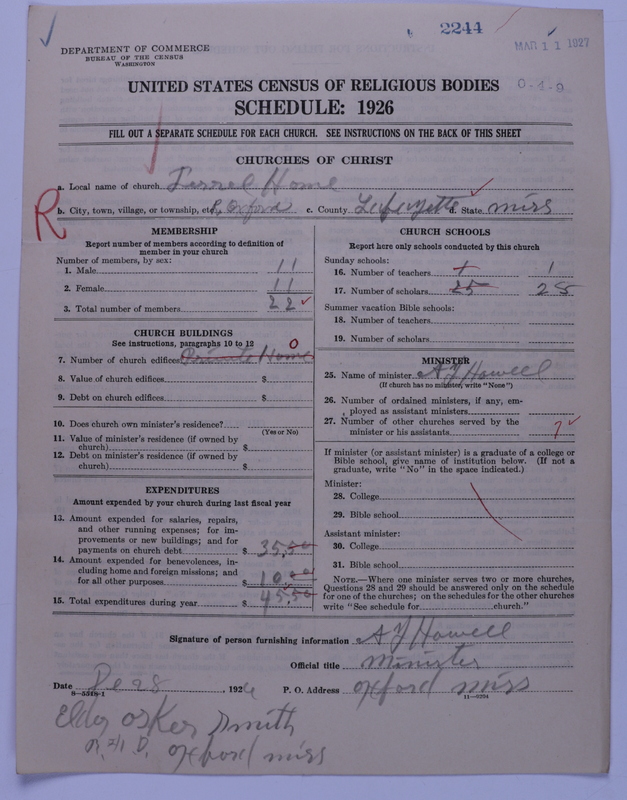 2244
MAR 11 1927
DEPARTMENT OF COMMERCE
BUREAU OF THE CENSUS
WASHINGTON
0-4-9
UNITED STATES CENSUS OF RELIGIOUS BODIES
SCHEDULE: 1926
FILL OUT A SEPARATE SCHEDULE FOR EACH CHURCH. SEE INSTRUCTIONS ON THE BACK OF THIS SHEET
CHURCHES OF CHRIST
a. Local name of church Home
R
b. City, town, village, or township, etc. Oxford c. County Lafayette d. State miss
MEMBERSHIP
Report number of members according to definition of
member in your church
Number of members, by sex:
1. Male 11
2. Female 11
3. Total number of members 22
CHURCH BUILDINGS
See instructions, paragraphs 10 to 12 0
7. Number of church edifices Private Home
8. Value of church edifices $
9. Debt on church edifices $
10. Does church own minister's residence?
(Yes or No)
11. Value of minister's residence (if owned by
church) $
12. Debt on minister's residence (if owned by
church) $
EXPENDITURES
Amount expended by your church during last fiscal year
13. Amount expended for salaries, repairs,
and other running expenses; for im-
provements or new buildings; and for
payments on church debt $ 35.00
14. Amount expended for benevolences, in-
cluding home and foreign missions; and
for all other purposes $ 10.00
15. Total expenditures during year $ 45.00
CHURCH SCHOOLS
Report here only schools conducted by this church
Sunday schools:
16. Number of teachers 1 1
17. Number of scholars 25 25
Summer vacation Bible schools:
18. Number of teachers
19. Number of scholars
MINISTER
25. Name of minister A J Howell
(If church has no minister, write "None")
26. Number of ordained ministers, if any, em-
ployed as assistant ministers
27. Number of other churches served by the
minister or his assistants 7
If minister (or assistant minister) is a graduate of a college or
Bible school, give name of institution below. (If not a
graduate, write "No" in the space indicated.)
Minister:
28. College
29. Bible school
Assistant minister:
30. College
31. Bible school
NOTE.—Where one minister serves two or more churches,
Questions 28 and 29 should be answered only on the schedule
for one of the churches; on the schedules for the other churches
write "See schedule for church."
Signature of person furnishing information A J Howell
Official title Minister
Date , 1926 P. O. Address Oxford miss
8-5518-1 11-9204
Elder Osker Smith
Oxford miss